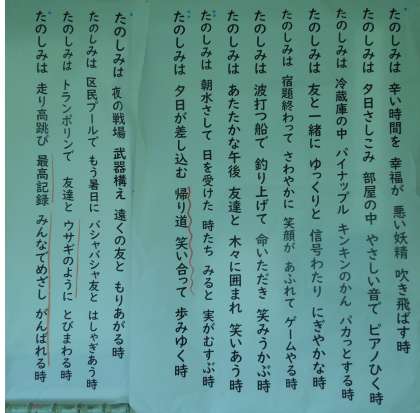 たのしみは 辛い時間を 幸福が 悪い妖精 吹き飛ばす時
たのしみは 夕日さしこみ 部屋の中 やさしい音で ピアノひく時
たのしみは 冷蔵庫の中 パイナップル キンキンのかん パカっとする時
たのしみは 友と一緒に ゆっくりと 信号わたり にぎやかな時
たのしみは 宿題終わって さわやかに 笑顔が あふれて ゲームやる時
たのしみは 波打つ船で 釣り上げて 命いただき 笑みうかぶ時
たのしみは あたたかな午後 友達と 木々に囲まれ 笑いあう時
たのしみは 朝水さして 日を受けた 時たち みると 実がむすぶ時
たのしみは 夕日が差し込む 帰り道 笑い合って 歩みゆく時
たのしみは 夜の戦場 武器構え 遠くの友と もりあがる時
たのしみは 区民プールで もう暑日に バシャバシャ友と はしゃぎあう時
たのしみは トランポリンで 友達と ウサギのように とびまわる時
たのしみは 走り高跳び 最高記録 みんなでめざし がんばれる時